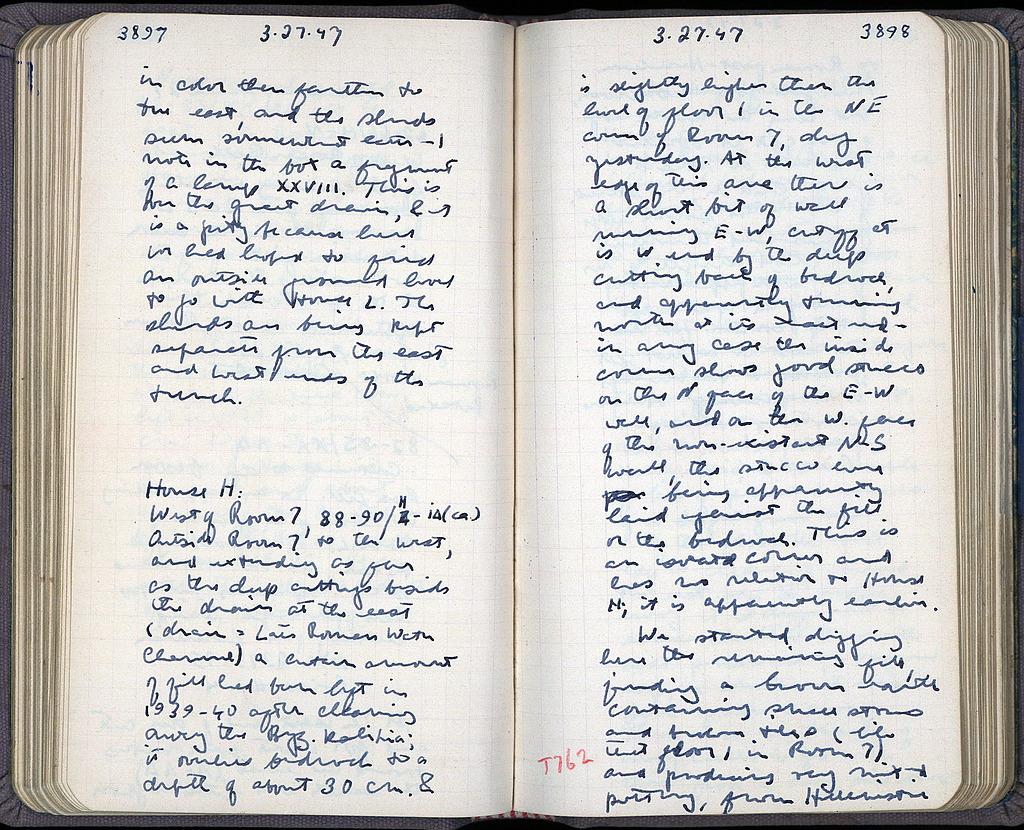 3897 3.27.47
in color then farther to
the east, and the sherds
seem somewhat later - I
note in the box a fragment
of a lamp XXVIII. This is
the great drain, but
is a pity because here
we had hoped to find
an outside ground level
to go with House L. The
sherds are being kept
separate from the east
and west ends of the
trench.
House H:
West of Room 7, 88-90/H-ΙΔ (ca.)
Outside Room 7 to the west,
and extending as far
as the deep cuttings beside
the drain at the east
(drain = Late Roman Water
Channel) a certain amount
of fill had been left in
1939-40 after clearing
away the Byz.
it overlies bedrock to a
depth of about 30 cm. &
3.27.47 3898
is slightly higher than the
level of floor 1 in the NE
corner of Room 7, dug
yesterday. At the west
edge of this area there is
a short bit of wall
running E-W, cut off at
its W. end by the deep
cutting back of bedrock,
and apparently turning
north at its east end -
in any case the inside
corner shows good stucco
on the N face of the E-W
wall, and on the W. face
of the non-existant N-S
wall, the stucco here
being apparently
laid against the fill
or the bedrock. This is
an isolated corner and
has no relation to House
H; it is apparently earlier.
We started digging
here the remaining fill,
finding a brown earth
containing small stones
and broken tiles (like
that floor 1 in Room 7)
T762
and producing very mixed
pottery, from Hellenistic